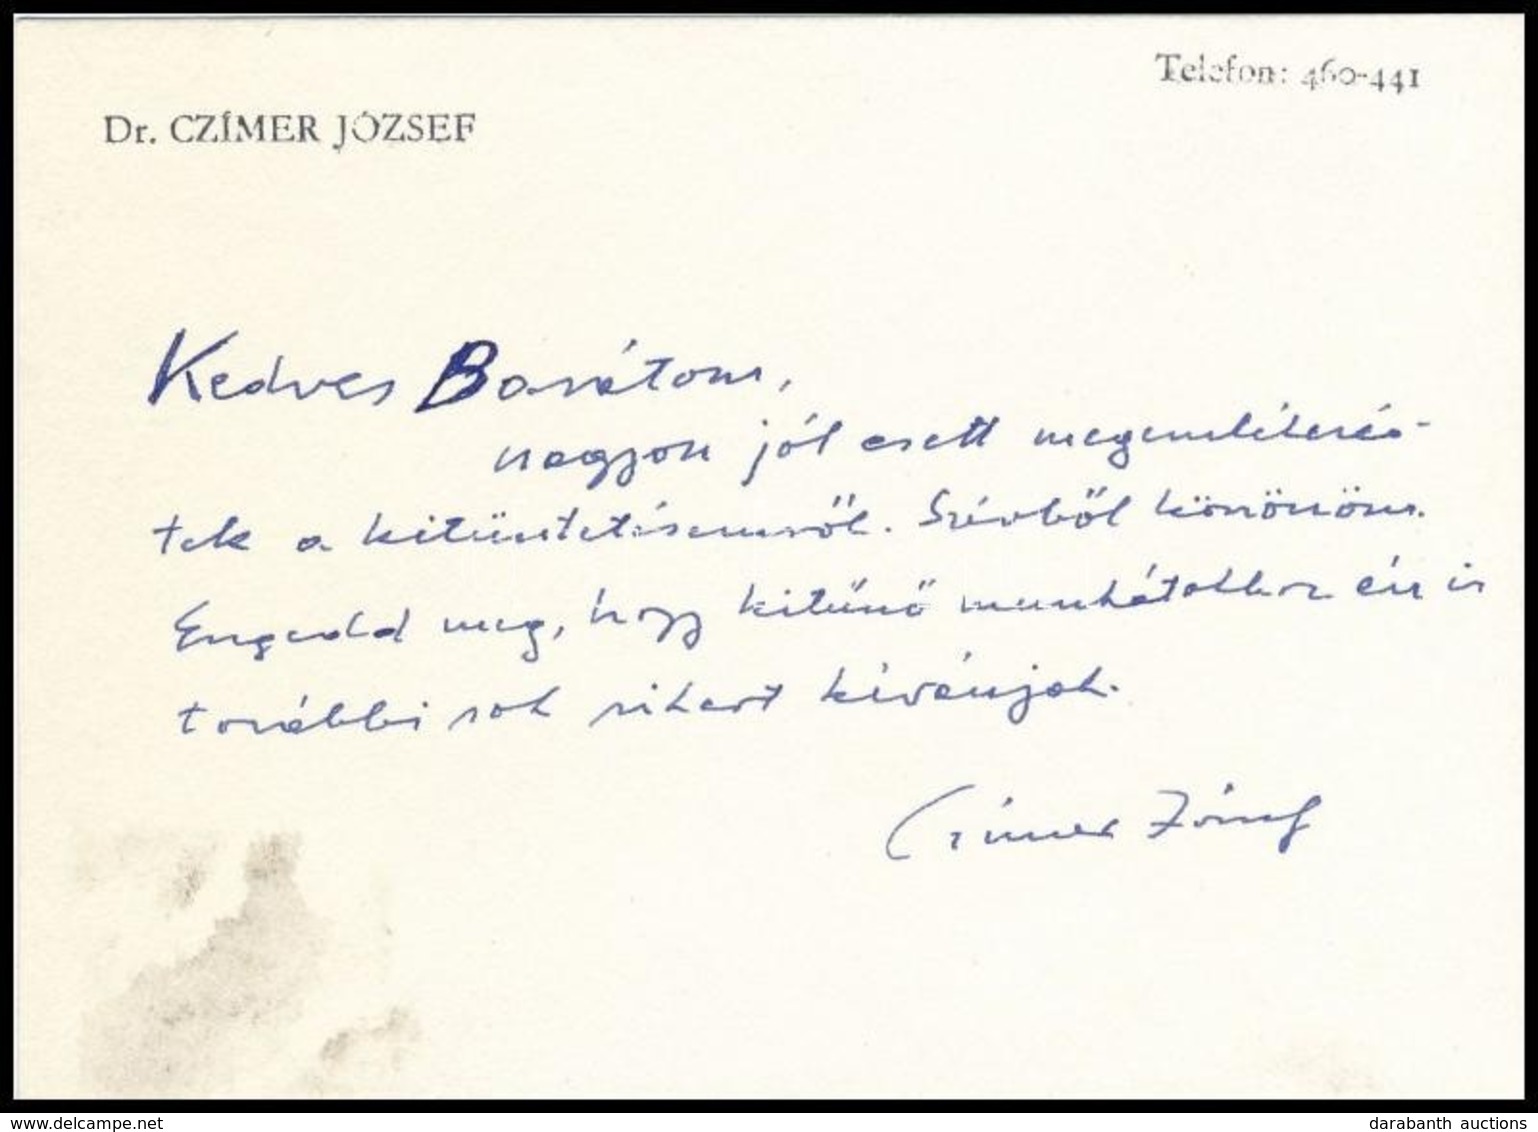 Telefon: 460-441
Dr. CZÍMER JÓZSEF
Kedves Barátom,
nagyon jól esett megemlékezés-
tek a kitüntetésemről. Szívből köszönöm.
Engedd meg, hogy kitűnő munkátokhoz én is
további sok sikert kívánjak.
Czímer József
delcampe.net
darabanth auctions